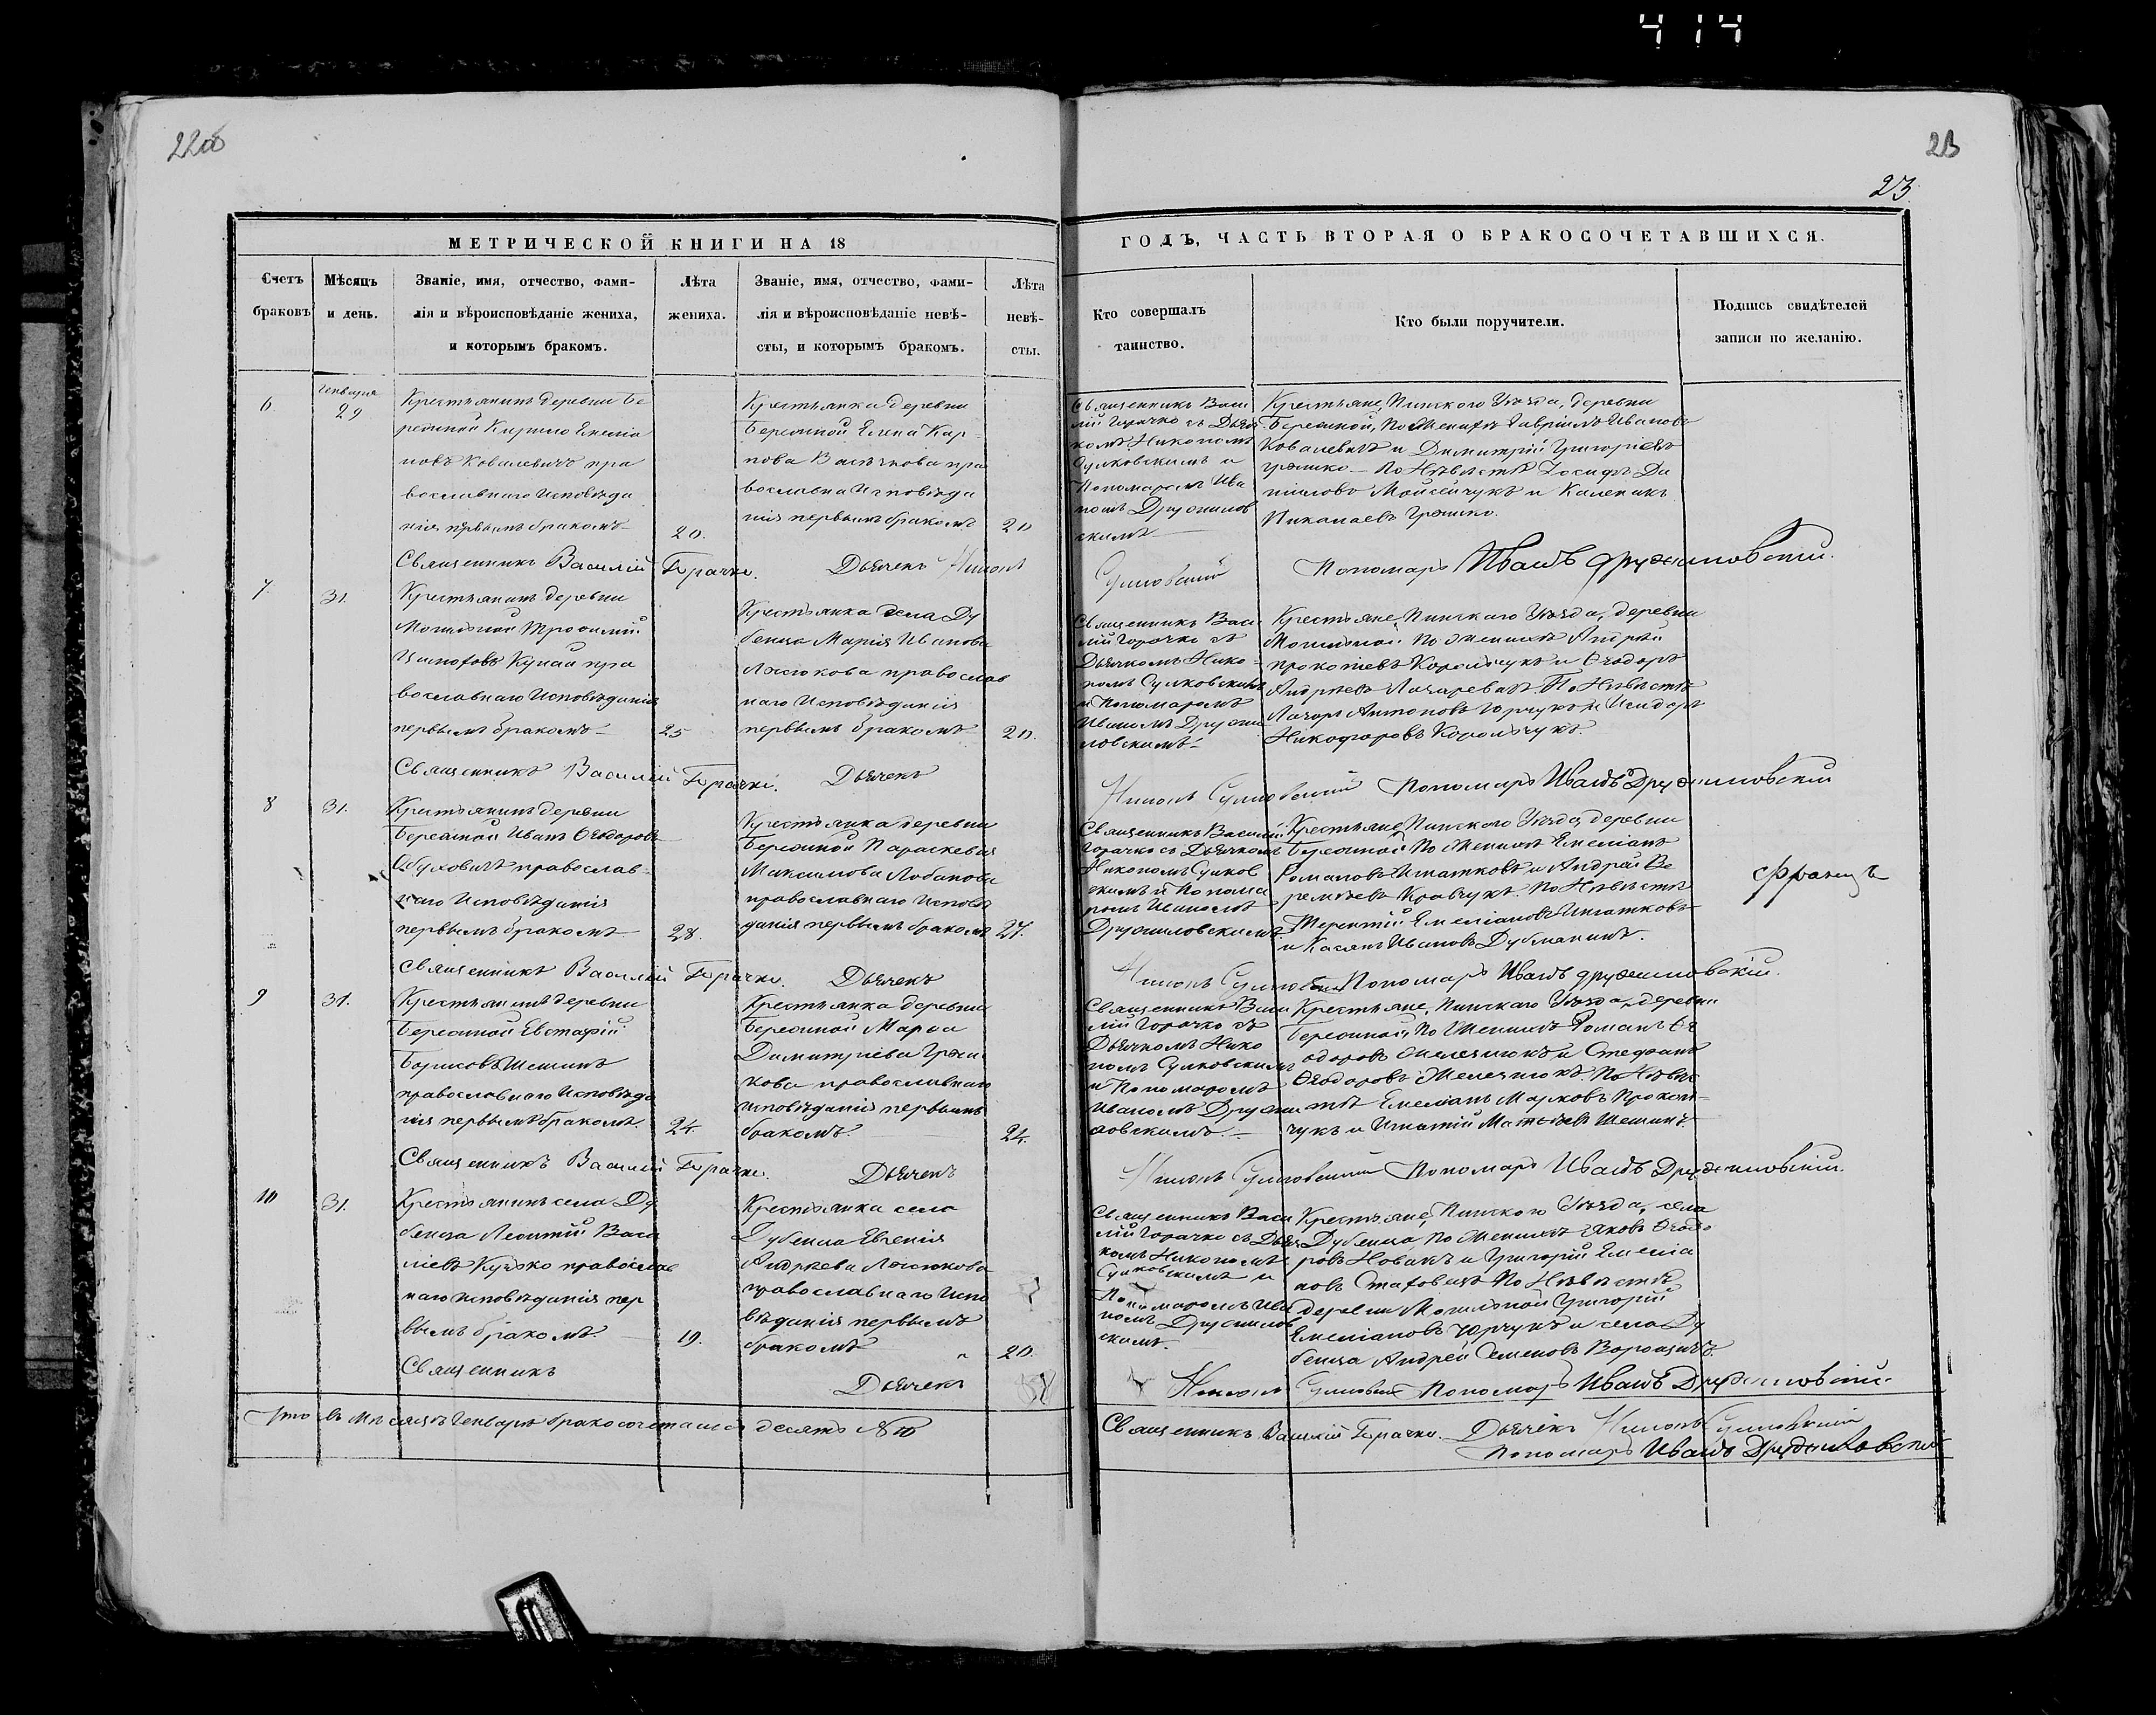 414
22об
23
23.
МЕТРИЧЕСКОЙ КНИГИ НА 18
ГОДЪ, ЧАСТЬ ВТОРАЯ О БРАКОСОЧЕТАВШИХСЯ.
Счетъ
браковъ
Мѣсяцъ
и день.
Званіе, имя, отчество, фами-
лія и вѣроисповѣданіе жениха,
и которымъ бракомъ.
Лѣта
жениха.
Званіе, имя, отчество, фами-
лія и вѣроисповѣданіе невѣ-
сты, и которымъ бракомъ.
Лѣта
невѣ-
сты.
Кто совершалъ
таинство.
Кто были поручители.
Подпись свидѣтелей
записи по желанію.
6
Генваря
29
Крестьянинъ деревни Бе
режной Кирило Емелія
новъ Ковалевичъ пра
вославнаго Исповѣда
нія первымъ бракомъ
20.
Крестьянка деревни
Бережной Елена Кар
пова Васѣчкова пра
вославна Исповѣда
нія первымъ бракомъ
20
Священникъ Васи
лій Горачко съ Дьяч
комъ Никономъ
Сулковскимъ и
Пономаремъ Ива
номъ Дружилов
скимъ
Крестьяне, Пинскаго Уѣзда, деревни
Бережной, По Женихѣ Гавріилъ Ивановъ
Ковалевичъ и Димитрій Григоріевъ
Гришко. По Невѣстѣ Іосифъ Да
ниловъ Мойсейчукъ и Каленикъ
Николаевъ Гришко.
Священникъ Василій Горачко. Дьячекъ Никонъ
Сулковскій Пономарь Иванъ Дружиловскій.
7.
31.
Крестьянинъ деревни
Могильной Трофимій
Купай пра
вославнаго Исповѣданія
первымъ бракомъ
25
Крестьянка села Ду
бенца Марія Иванова
Ласюкова православ
наго Исповѣданія
первымъ бракомъ
20.
Священникъ Васи
лій Горачко съ
Дьячкомъ Нико
номъ Сулковскимъ
и Пономаремъ
Иваномъ Дружи
ловскимъ
Крестьяне, Пинскаго Уѣзда, деревни
Могильной По Женихѣ Андрей
Прокопіевъ Корольчукъ и Ѳеодоръ
Андреевъ Лазаревичъ. По Невѣстѣ
Лазарь Антоновъ Юрчукъ и Исидоръ
Никифоровъ Корольчукъ.
Священникъ Василій Горачко. Дьячекъ
Никонъ Сулковскій Пономарь Иванъ Дружиловскій
8
31.
Крестьянинъ деревни
Бережной Иванъ Ѳеодоровъ
православ
наго Исповѣданія
первымъ бракомъ
28.
Крестьянка деревни
Бережной Параскевія
Максимова Лобанова
православнаго Исповѣ
данія первымъ бракомъ
27.
Священникъ Василій
Горачко съ Дьячкомъ
Никономъ Сулков
скимъ и Понома
ремъ Иваномъ
Дружиловскимъ
Крестьяне, Пинскаго Уѣзда, деревни
Бережной По Женихѣ Емеліанъ
Романовъ Игнатковъ и Андрей Ве
ремѣевъ Кравчукъ. По Невѣстѣ
Терентій Емеліановъ Игнатковъ
и Касьянъ Ивановъ Дубманинъ.
Францъ
Священникъ Василій Горачко. Дьячекъ
Никонъ Пономарь Иванъ Дружиловскій.
9
31.
Крестьянинъ деревни
Бережной Евстафій
Борисовъ Шешинъ
православнаго Исповѣда
нія первымъ бракомъ.
24.
Крестьянка деревни
Бережной Марфа
Димитріева Гриш
кова православнаго
исповѣданія первымъ
бракомъ.
24.
Священникъ Васи
лій Горачко съ
Дьячкомъ Нико
номъ Сулковскимъ
и Пономаремъ
Иваномъ Дружи
ловскимъ.
Крестьяне, Пинскаго Уѣзда, деревни
Бережной, По Женихѣ Романъ Ѳе
одоровъ Мелешюкъ и Стефанъ
Ѳеодоровъ Мелешюкъ. По Невѣс
тѣ Емеліанъ Марковъ Прокоп
чукъ и Игнатій Матвѣевъ Шешинъ.
Священникъ Василій Горачко. Дьячекъ
Никонъ Сулковскій Пономарь Иванъ Дружиловскій.
10
31.
Крестьянинъ села Ду
бенца Леонтій Васи
ліевъ православ
наго исповѣданія пер
вымъ бракомъ.
19.
Крестьянка села
Дубенца Евгенія
Андреева Ласюкова
православнаго Испо
вѣданія первымъ
бракомъ
20.
Священникъ Васи
лій Горачко съ Дьяч
комъ Никономъ
Сулковскимъ и
Пономаремъ Ива
номъ Дружилов
скимъ.
Крестьяне, Пинскаго Уѣзда, села
Дубенца, По Женихѣ Яковъ Ѳеодо
ровъ Новакъ и Григорій Емелія
новъ По Невѣстѣ
деревни Могильной Григорій
Емеліановъ Юрчукъ и села Ду
бенца Андрей Семеновъ
Священникъ Дьячекъ
Никонъ Сулковскій Пономарь Иванъ Дружиловскій.
Что въ Мѣсяцѣ Генварѣ бракосочеталось десять №10
Священникъ Василій Горачко. Дьячёкъ Никонъ Сулковскій
Пономарь Иванъ Дружиловскій